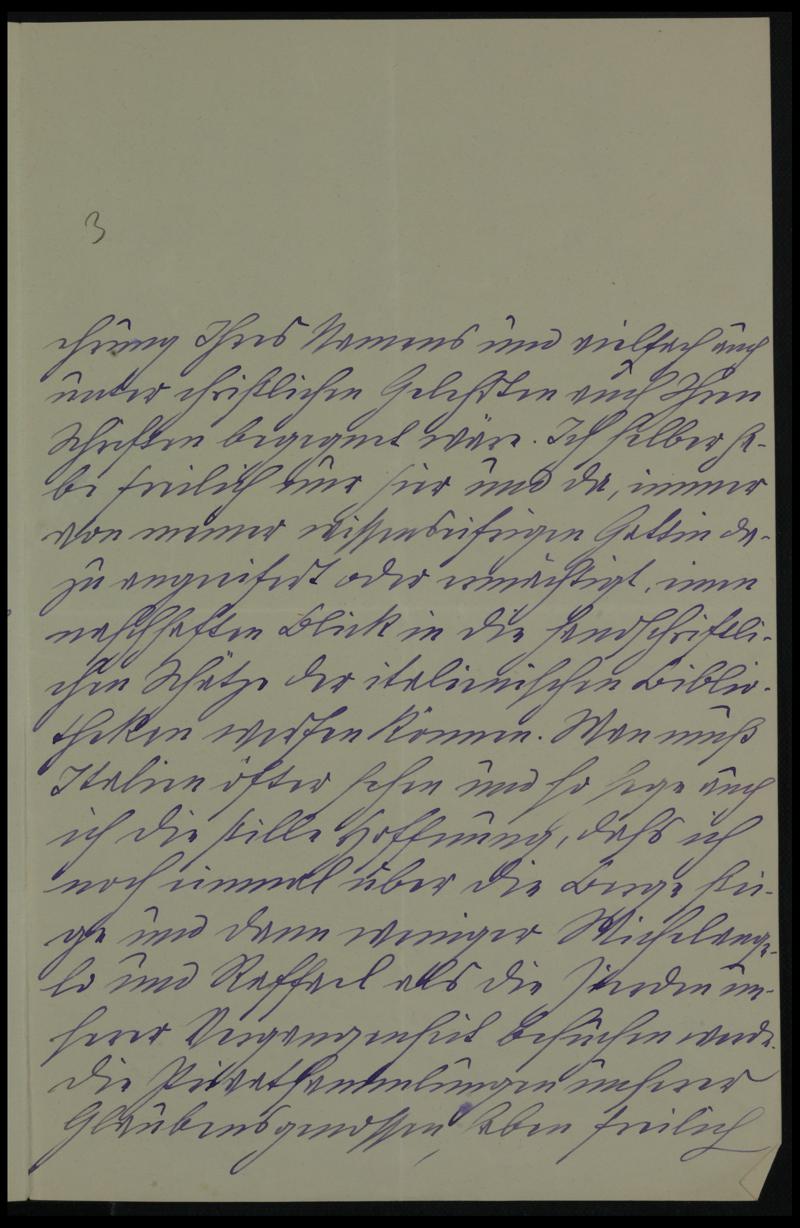 3
ehrung Ihres Namens und vielfach auch
unter christlichen Gelehrten auch Ihren
Schriften begegnet wäre. Ich selber ha-
be freilich nur hier und da, immer
von meiner wissenseifrigen Gattin da-
zu angeeifert oder ermächtigt, einen
naschhaften Blick in die handschriftli-
chen Schätze der italienischen Biblio-
theken werfen können. Man muß
Italien öfter sehen und so hege auch
ich die stille Hoffnung, daß ich
noch einmal über die Berge stei-
ge und dann weniger Michelange-
lo und Raffael als die Juden un-
serer Vergangenheit besuchen werde.
Die Privatsammlungen unserer
Glaubensgenossen, haben freilich